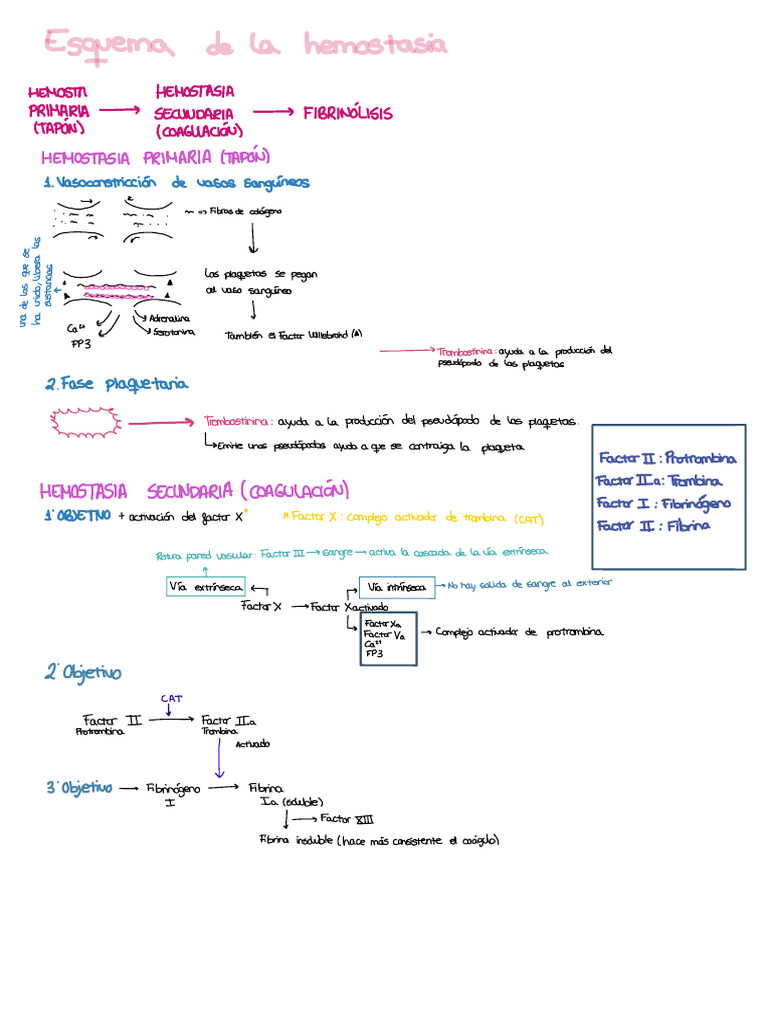 Esquema de la hemostasia
HEMOSTI
PRIMARIA
(TAPÓN)
HEMOSTASIA
SECUNDARIA
(COAGULACIÓN)
FIBRINÓLISIS
HEMOSTASIA PRIMARIA (TAPÓN)
1. Vasoconstricción de vasos sanguíneos
=> Fibras de colágeno
una de las que se
ha unido, libera las
sustancias
Las plaquetas se pegan
al vaso sanguíneo
Adrenalina
Serotonina
Ca²⁺
FP3
También el Factor Willebrand (A)
Trombostinina: ayuda a la producción del
pseudópodo de las plaquetas
2. Fase plaquetaria
Trombostinina: ayuda a la producción del pseudópodo de las plaquetas.
Emite unos pseudópodos ayuda a que se contraiga la plaqueta
Factor II: Protrombina
Factor IIa: Trombina
Factor I: Fibrinógeno
Factor II: Fibrina
HEMOSTASIA SECUNDARIA (COAGULACIÓN)
1° OBJETIVO + activación del factor X*
*Factor X: complejo activador de trombina (CAT)
Rotura pared vascular: Factor III → sangre → activa la cascada de la vía extrínseca
Vía extrínseca
Vía intrínseca
No hay salida de sangre al exterior
Factor X → Factor Xactivado
Factor Xa
Factor Va
Ca²⁺
FP3
Complejo activador de protrombina
2° Objetivo
CAT
Factor II
Protrombina
Factor IIa
Trombina
Activado
3° Objetivo → Fibrinógeno → Fibrina
I
Ia (soluble)
Factor XIII
Fibrina insoluble (hace más consistente el coágulo)